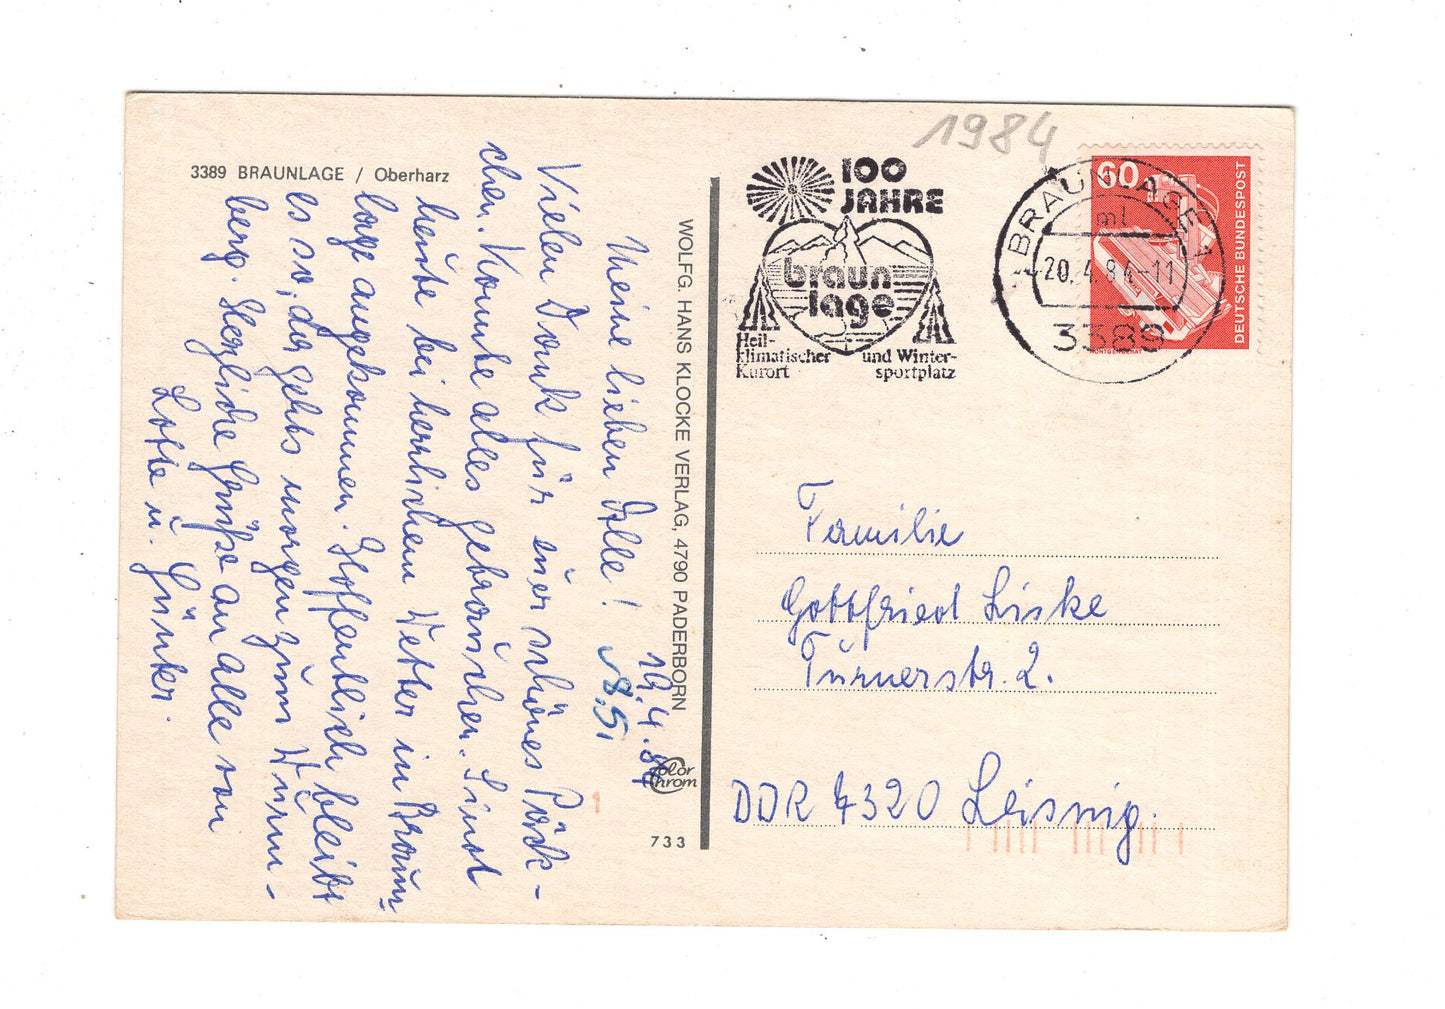 1984
3389 BRAUNLAGE / Oberharz
100
JAHRE
braun
lage
Heil-
klimatischer
Kurort
und Winter-
sportplatz
BRAUNLAGE 1
ml
20.4.84-11
3389
60
DEUTSCHE BUNDESPOST
RÖNTGENGERÄT
WOLFG. HANS KLOCKE VERLAG, 4790 PADERBORN
Color
Chrom
733
1
19.4.84
Meine lieben Alle!
8.5.
Vielen Dank für euer schönes Päck-
chen. Konnte alles gebrauchen. Sind
heute bei herrlichem Wetter in Braun-
lage angekommen. Hoffentlich bleibt
es so, da gehts morgen zum Wurm-
berg. Herzliche Grüße an alle von
Lotte u. Günter.
Familie
Gottfried Liske
Turnerstr. 2.
DDR 7320 Leisnig.